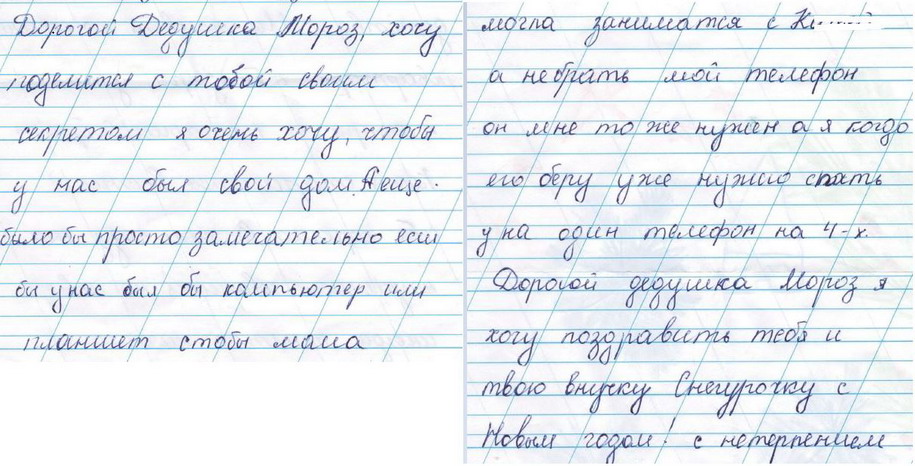 Дорогой Дедушка Мороз, хочу
поделится с тобой своим
секретом я очень хочу, чтобы
у нас был свой дом. А еще.
было бы просто замечательно если
бы у нас был бы кампьютер или
планшет стобы мама
могла заниматся с
а небрать мой телефон
он мне то же нужен а я когдо
его беру уже нужно спать
у на один телефон на 4-х.
Дорогой дедушка Мороз я
хочу поздравить тебя и
твою внучку Снегурочку с
Новым годом! с нетерпением